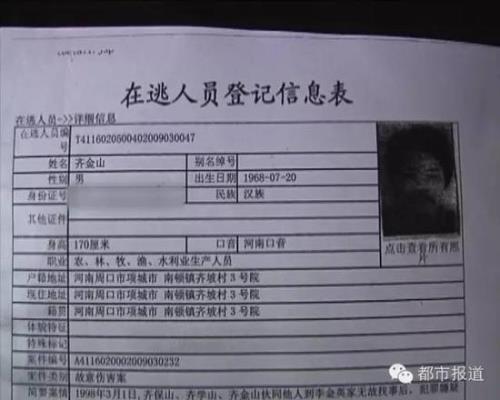 在逃人员登记信息表
在逃人员->>详细信息
在逃人员编号 T4116020500402009030047
姓名 齐金山 别名绰号
性别 男 出生日期 1968-07-20
身份证号 民族 汉族
其他证件
身高 170厘米 口音 河南口音
点击查看所有照片
职业 农、林、牧、渔、水利业生产人员
户籍地址 河南周口市项城市 南顿镇齐坡村3号院
现住地址 河南周口市项城市 南顿镇齐坡村3号院
籍贯 河南周口市项城市 南顿镇齐坡村3号院
体貌特征
特殊标记
案件编号 A4116020002009030232
案件类别 故意伤害案
简要案情 1998年3月1日,齐保山、齐学山、齐金山伙同他人到李金英家无故找事后,犯罪嫌疑
都市报道